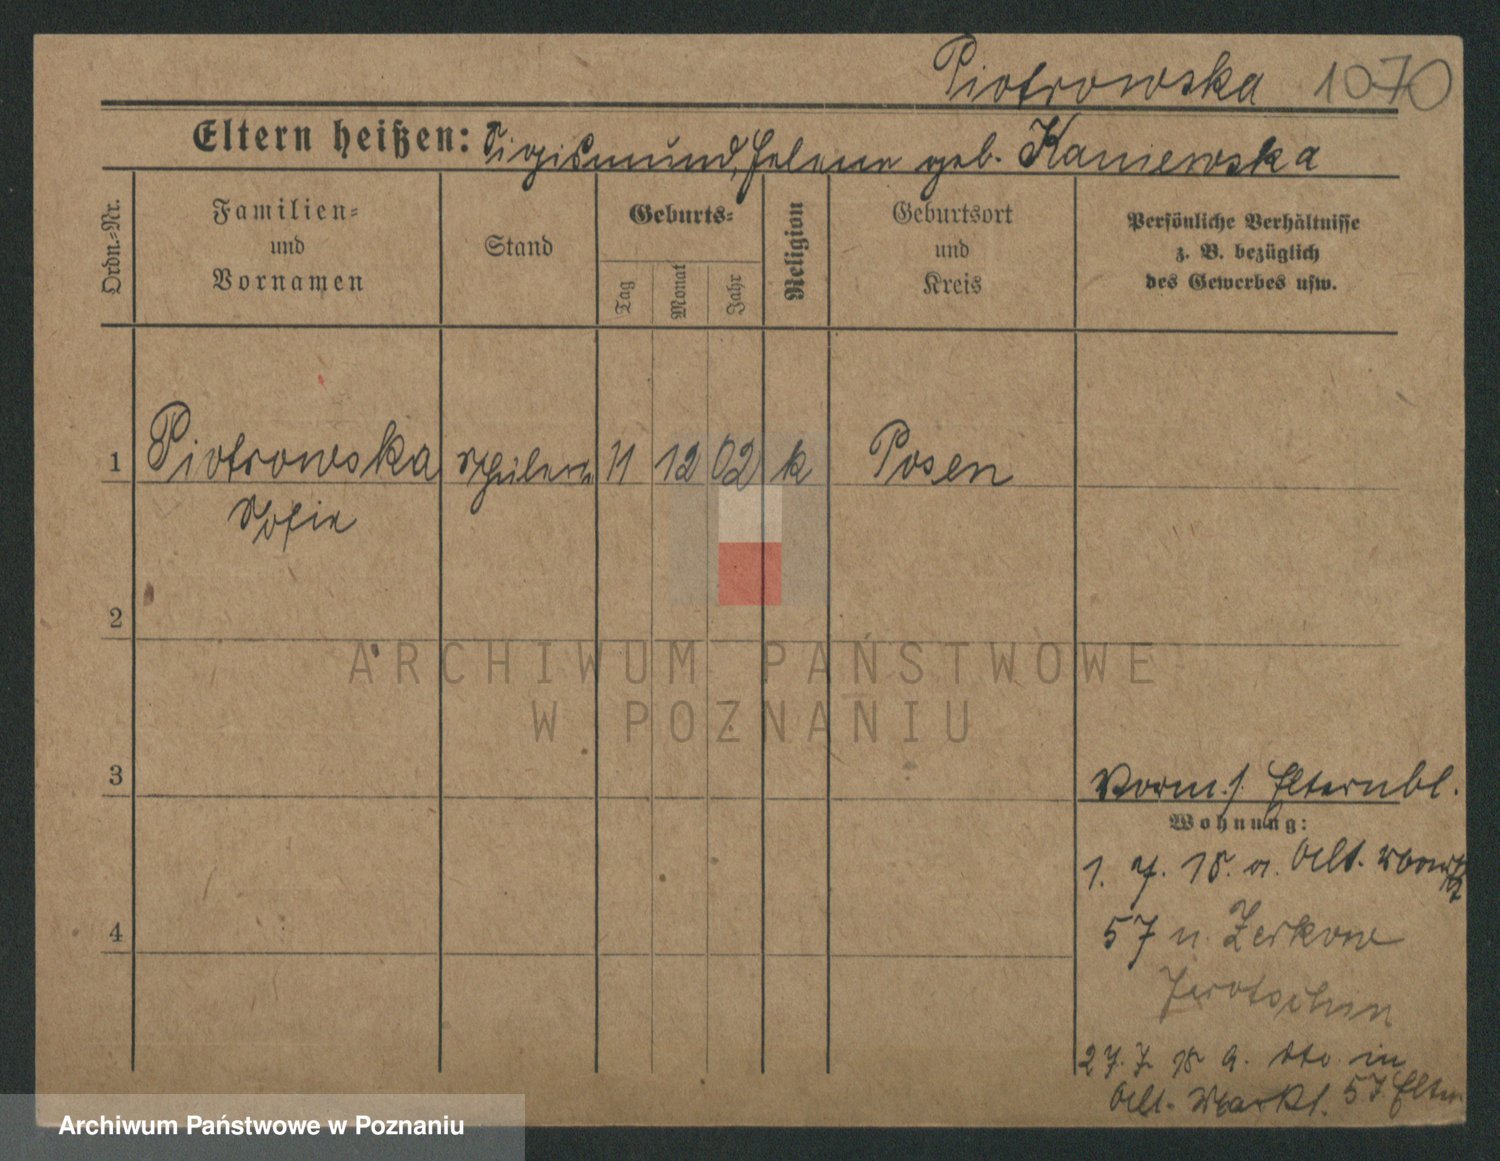 Piotrowska 1070
Eltern heißen: Sigismund, Helene geb. Kaniewska
Ordn.-Nr.
Familien-
und
Vornamen
Stand
Geburts-
Tag
Monat
Jahr
Religion
Geburtsort
und
Kreis
Persönliche Verhältnisse
z. B. bezüglich
des Gewerbes usw.
1 Piotrowska Schülerin 11 12 02 k Posen
Sofie
2
ARCHIWUM PAŃSTWOWE
W POZNANIU
3
Vorm. s. Elternbl.
Wohnung:
1. 7. 18. a. Alt. Markt
57 n. Zerkow
Jarotschin
27. 7. 18 a. dto. in
Alt. Markt. 57 Eltern
4
Archiwum Państwowe w Poznaniu